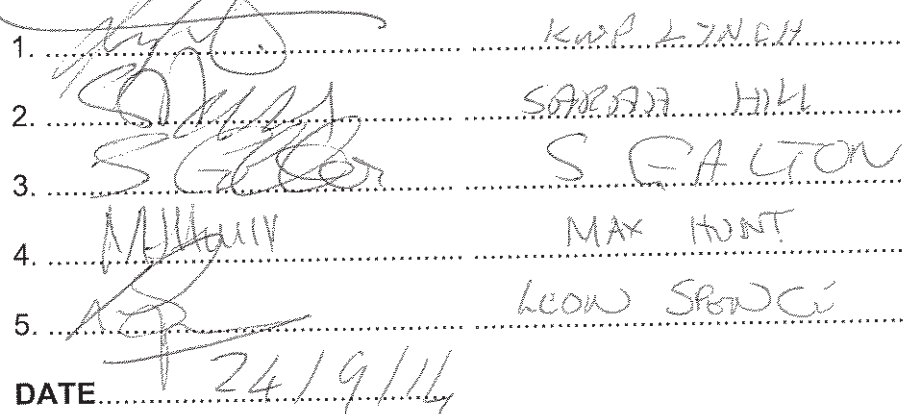 1. KWP LYNCH
2. SARAH HILL
3. S GALTON
4. MAX HUNT
5. LEON SPENCE
DATE 24/9/14